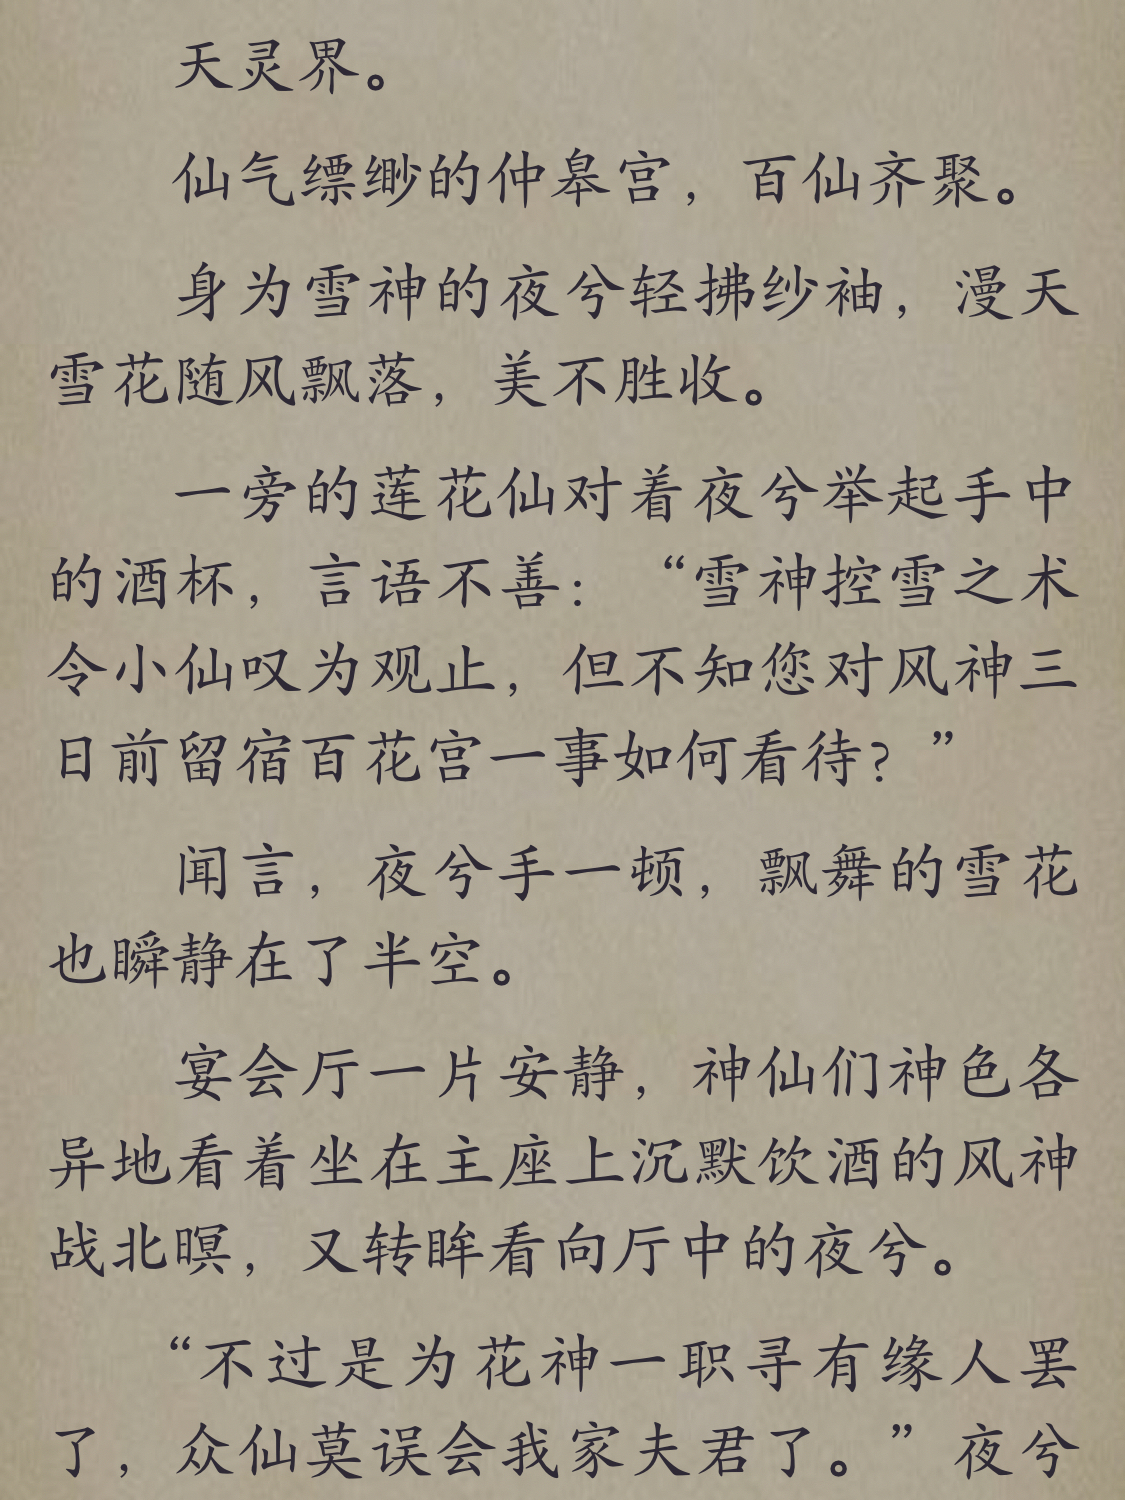 天灵界。
仙气缥缈的仲皋宫，百仙齐聚。
身为雪神的夜兮轻拂纱袖，漫天
雪花随风飘落，美不胜收。
一旁的莲花仙对着夜兮举起手中
的酒杯，言语不善：“雪神控雪之术
令小仙叹为观止，但不知您对风神三
日前留宿百花宫一事如何看待？”
闻言，夜兮手一顿，飘舞的雪花
也瞬静在了半空。
宴会厅一片安静，神仙们神色各
异地看着坐在主座上沉默饮酒的风神
战北暝，又转眸看向厅中的夜兮。
“不过是为花神一职寻有缘人罢
了，众仙莫误会我家夫君了。”夜兮